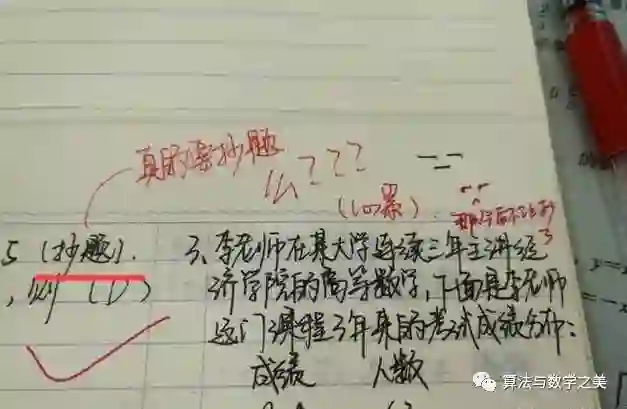 真的要抄题
么???
(心累)
5 (抄题).
, 则 (1)
3、李老师在某大学连续三年主讲经
济学院的高等数学,下面是李老师
这门课程3年来的考试成绩分布:
成绩 人数
算法与数学之美